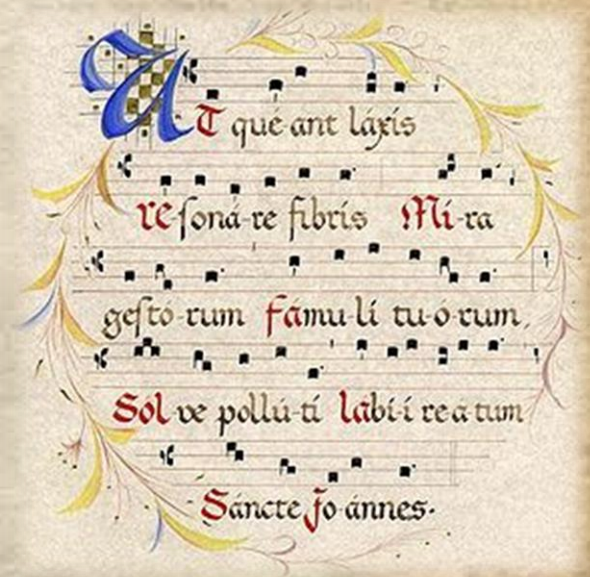 UT que ant láxis
reſoná-re fibris Mi-ra
geſtó-rum fámu li tu-ó-rum,
Sol ve pollú-ti lábi-i re a tum
Sáncte Jo-ánnes.